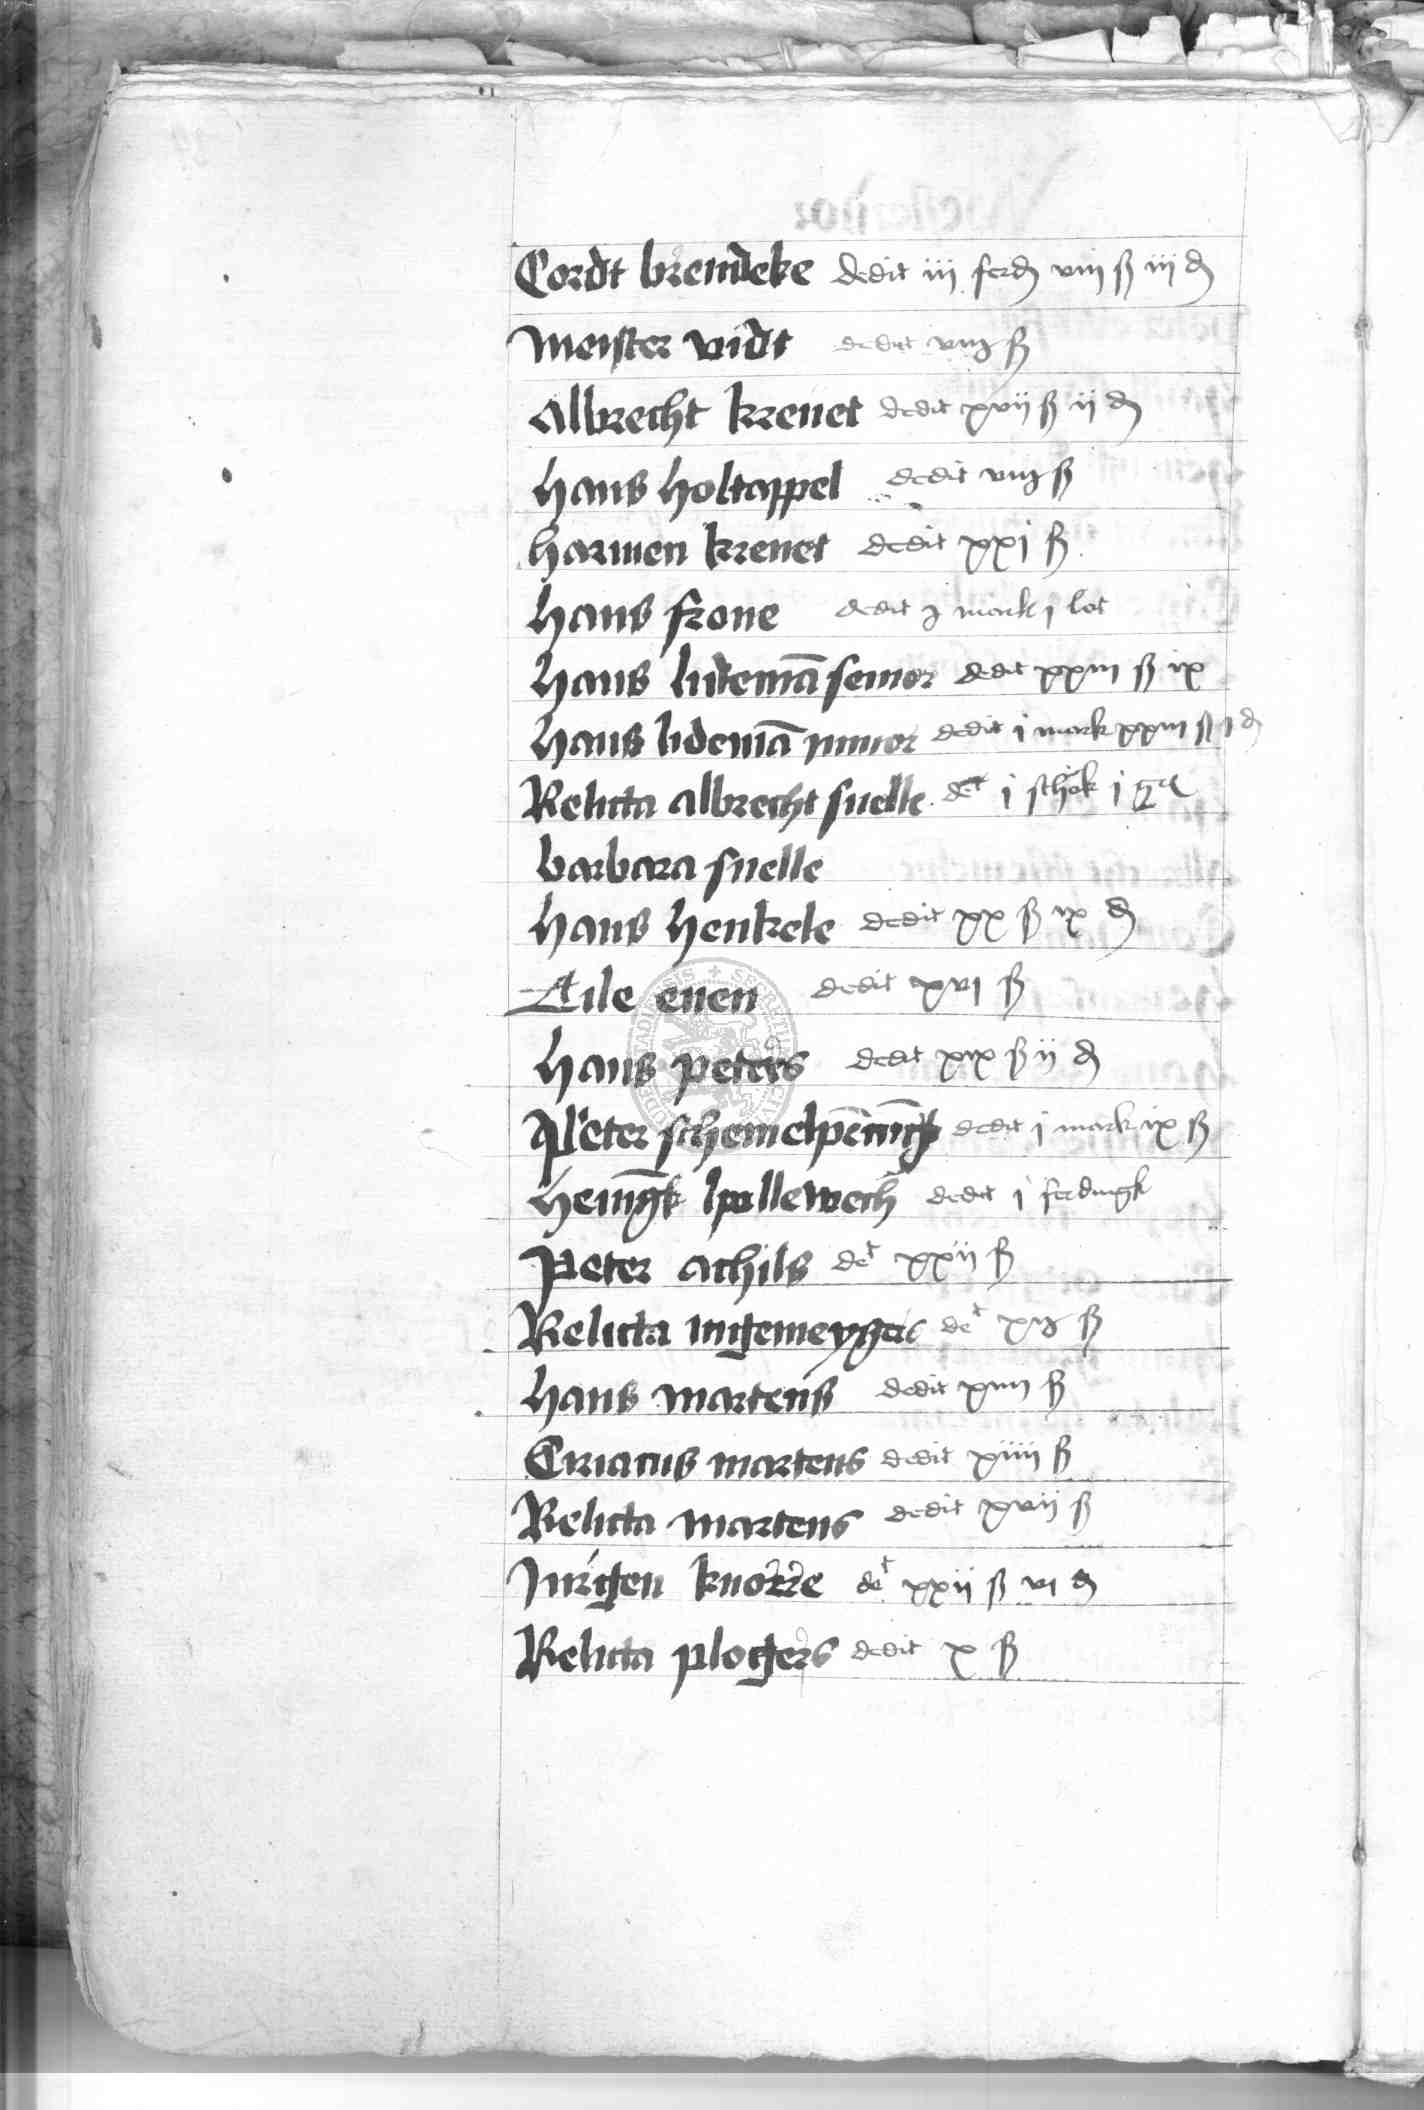 Cordt bremdeke dedit iii ferd viii ß iii ₰
Meister vidt dedit viij ß
Albrecht krenet dedit xvii ß ii ₰
hans holtappel dedit viij ß
harmen krenet dedit xxi ß
hans frone dedit j mark j lot
hans lidemā senior dedit xxiii ß ix
hans lidemā junior dedit i mark xxiii ß i ₰
Relicta albrecht snelle det i schok i
barbara snelle
hans henkele dedit xx ß ix ₰
Tile enen dedit xvi ß
hans peters dedit xix ß ii ₰
Peter schemelpēnīgk dedit i mark ix ß
heningk dedit i ferdingk
Peter achils det xxii ß
Relicta det ß
hans martens dedit xiiii ß
Ciriacus martens dedit xiiii ß
Relicta martens dedit xvii ß
Jurgen knorre det xxii ß vi ₰
Relicta plogers dedit x ß